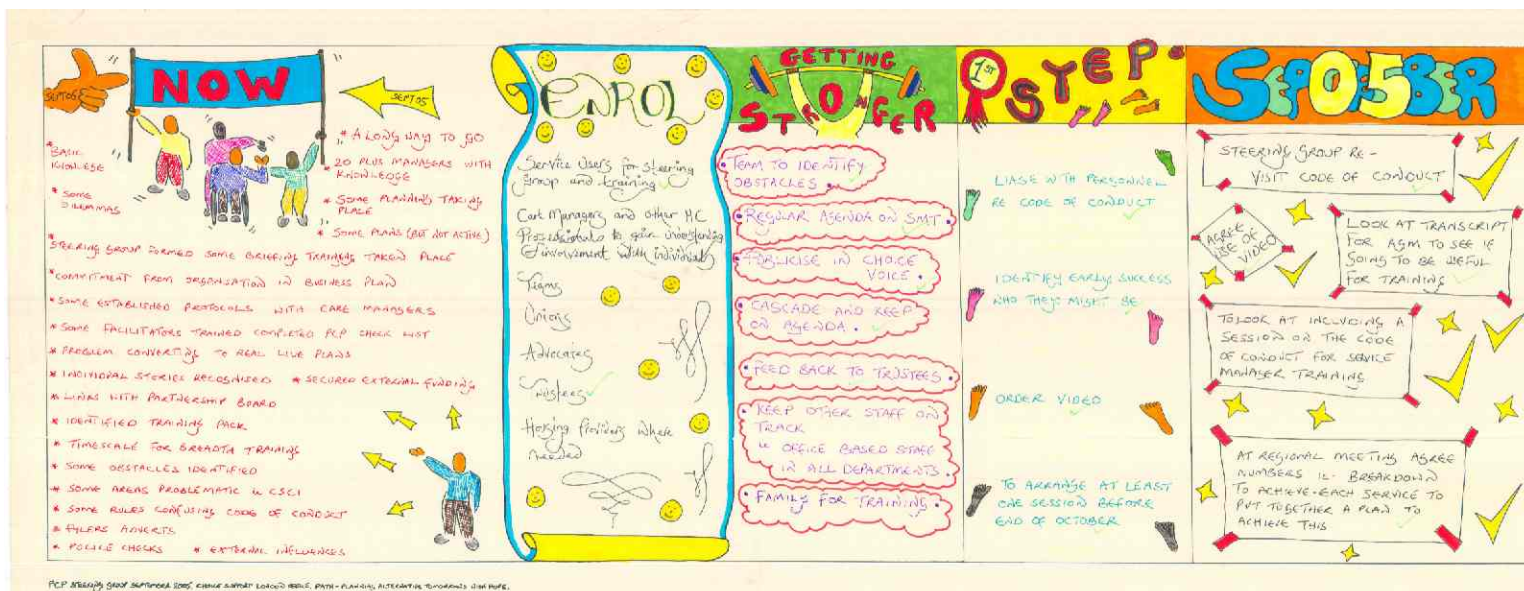 SEPT 05
NOW
SEPT 05
* BASIC
KNOWLEGE
* SOME
DILEMMAS
* A LONG WAY TO GO
* 20 PLUS MANAGERS WITH
KNOWLEDGE
* SOME PLANNING TAKING
PLACE
* SOME PLANS (BUT NOT ACTIVE)
* STEERING GROUP FORMED SOME BRIEFING TRAINING TAKEN PLACE
* COMMITMENT FROM ORGANISATION IN BUSINESS PLAN
* SOME ESTABLISHED PROTOCOLS WITH CARE MANAGERS
* SOME FACILITATORS TRAINED COMPLETED PCP CHECK LIST
* PROBLEM CONVERTING TO REAL LIVE PLANS
* INDIVIDUAL STORIES RECOGNISED * SECURED EXTERNAL FUNDING
* LINKS WITH PARTNERSHIP BOARD
* IDENTIFIED TRAINING PACK
* TIMESCALE FOR BREADTH TRAINING
* SOME OBSTACLES IDENTIFIED
* SOME AREAS PROBLEMATIC ie CSCI
* SOME RULES CONFUSING CODE OF CONDUCT
* FLIERS ADVERTS
* POLICE CHECKS * EXTERNAL INFLUENCES
ENROL
Service Users for steering
group and training
Care Managers and other HC
Professionals to gain understanding
& involvement with individuals
Teams
Unions
Advocates
Trustees
Housing Providers where
needed
GETTING
STRONGER
• TEAM TO IDENTIFY
OBSTACLES •
• REGULAR AGENDA ON SMT •
• PUBLICISE IN CHOICE
VOICE •
• CASCADE AND KEEP
ON AGENDA •
• FEED BACK TO TRUSTEES •
• KEEP OTHER STAFF ON
TRACK
ie OFFICE BASED STAFF
IN ALL DEPARTMENTS •
• FAMILY FOR TRAINING •
1ST
STEPS
LIASE WITH PERSONNEL
RE CODE OF CONDUCT
IDENTIFY EARLY SUCCESS
WHO THEY MIGHT BE
ORDER VIDEO
TO ARRANGE AT LEAST
ONE SESSION BEFORE
END OF OCTOBER
STEERING GROUP RE-
VISIT CODE OF CONDUCT
AGREE
USE OF
VIDEO
LOOK AT TRANSCRIPT
FOR AGM TO SEE IF
GOING TO BE USEFUL
FOR TRAINING
TO LOOK AT INCLUDING A
SESSION ON THE CODE
OF CONDUCT FOR SERVICE
MANAGER TRAINING
AT REGIONAL MEETING AGREE
NUMBERS IE - BREAKDOWN
TO ACHIEVE - EACH SERVICE TO
PUT TOGETHER A PLAN TO
ACHIEVE THIS
PCP STEERING GROUP SEPTEMBER 2005. CHOICE SUPPORT PATH - PLANNING ALTERNATIVE TOMORROWS WITH HOPE.